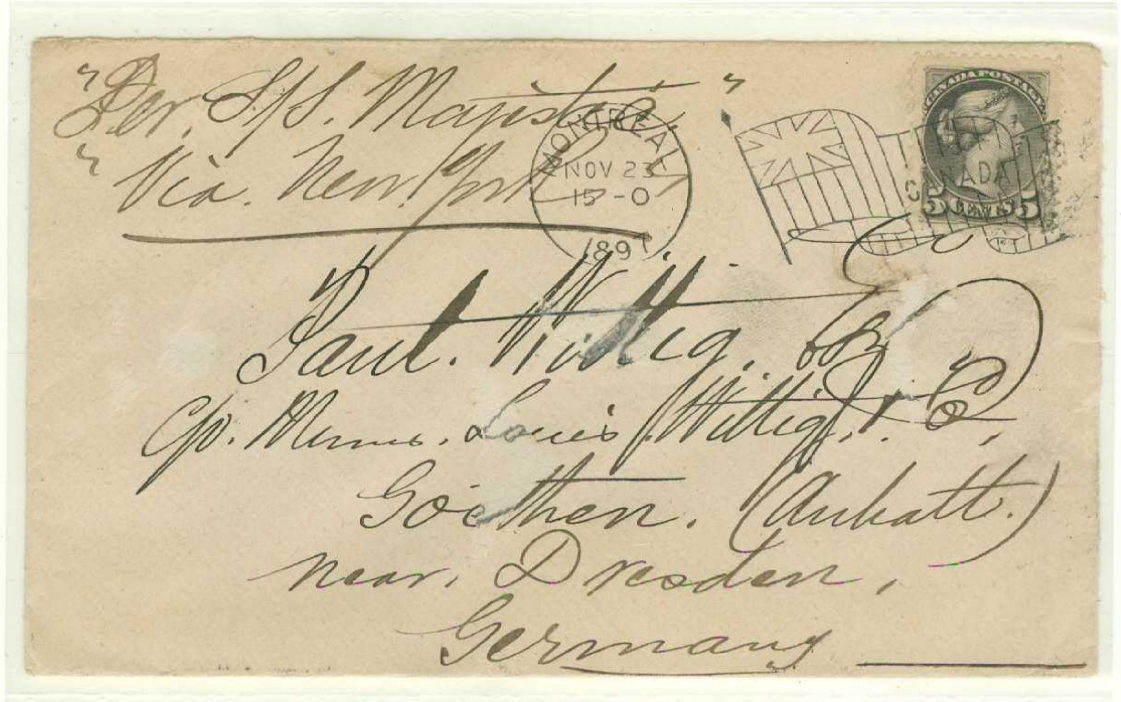 "Per. S/S. Majestic"
"Via. New York"
MONTREAL
NOV 23
15-0
1897
CANADA POSTAGE
CANADA
5 CENTS 5
Paul. Wittig. Esq
C/o. Messrs. Louis Wittig. & Co,
Goethen. (Anhalt.)
near, Dresden,
Germany